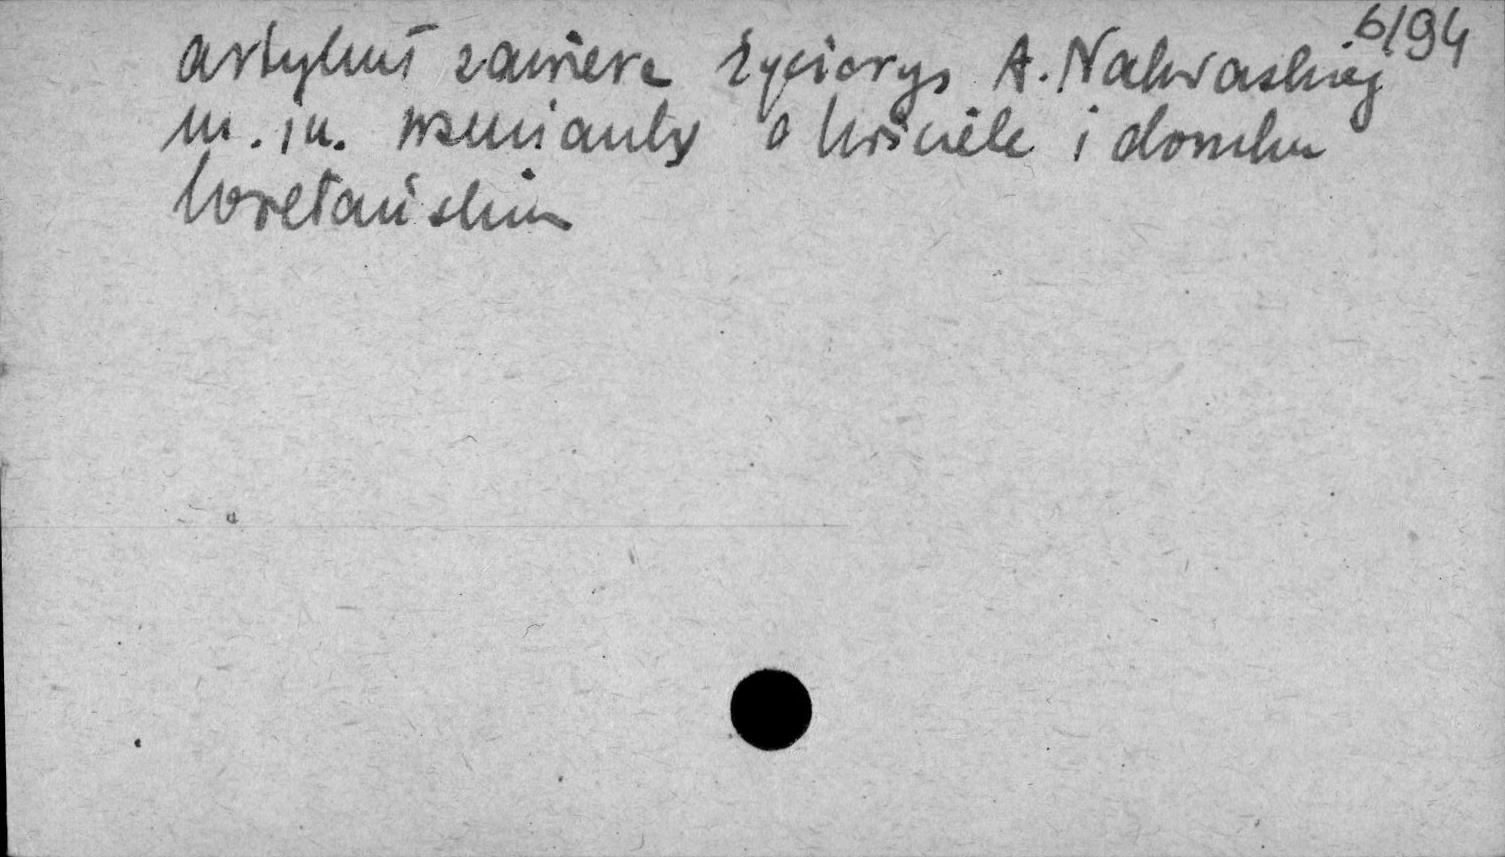 6/94
artykuł zawiera życiorys A. Nakwaskiej
m. in. wzmianki o kościele i domku
loretańskim